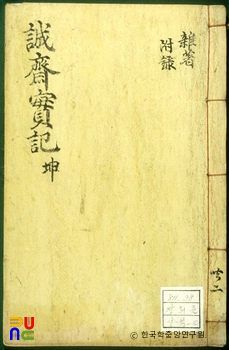 雜著
附錄
誠齋實記 坤
共二
FUNC
© 한국학중앙연구원